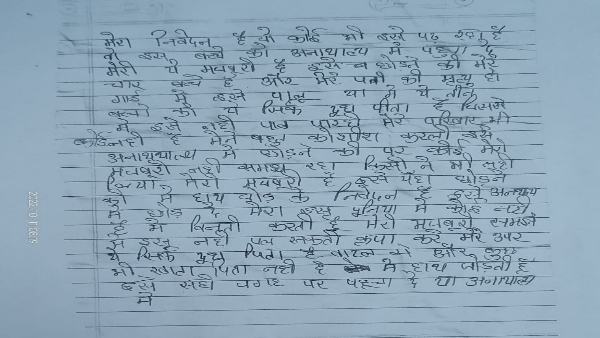 मेरा निवेदन है जो कोई भी इसे पढ़ रहा है
वो इस बच्चे को अनाथालय में पहुंचा दे
मेरी ये मजबूरी है इसे छोड़ने की मेरे
चार बच्चे है और मेरे पती की मृत्यु हो
गई मैं इसे पालू या में ये तीन
बच्चो को ये सिर्फ दूध पीता है जिससे
मैं इसे नही पाल मेरे परिवार भी
कोई नही है मैंने बहुत कोशीश करली इसे
अनाथालय में छोड़ने की पर कोई मेरी
मजबूरी नही समझ रहा किसी ने भी नही
लिया मेरी मजबूरी है इसे यहा छोड़ने
की मैं हाथ जोड़ के निवेदन है इसे अनाथालय
में छोड़ दे मेरा इस दुनिया में कोई नही
है मैं विनती करती हूँ मेरी मजबूरी समझे
मैं इसे नही पाल सकती कृपा करे मेरे उपर
ये सिर्फ दूध पिता है बाटल से और कुछ
भी खाता पिता नही है मैं हाथ जोड़ती हूँ
इसे सही जगह पर पहुचा दे या अनाथालय
में